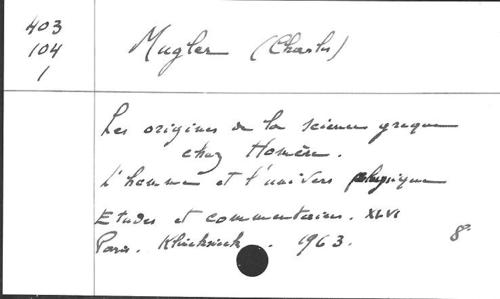 403
104
1
Mugler (Charles)
Les origines de la science grecque
chez Homère.
L'homme et l'univers physique
Etudes et commentaires. XLVI
Paris. Klincksieck. 1963. 8°